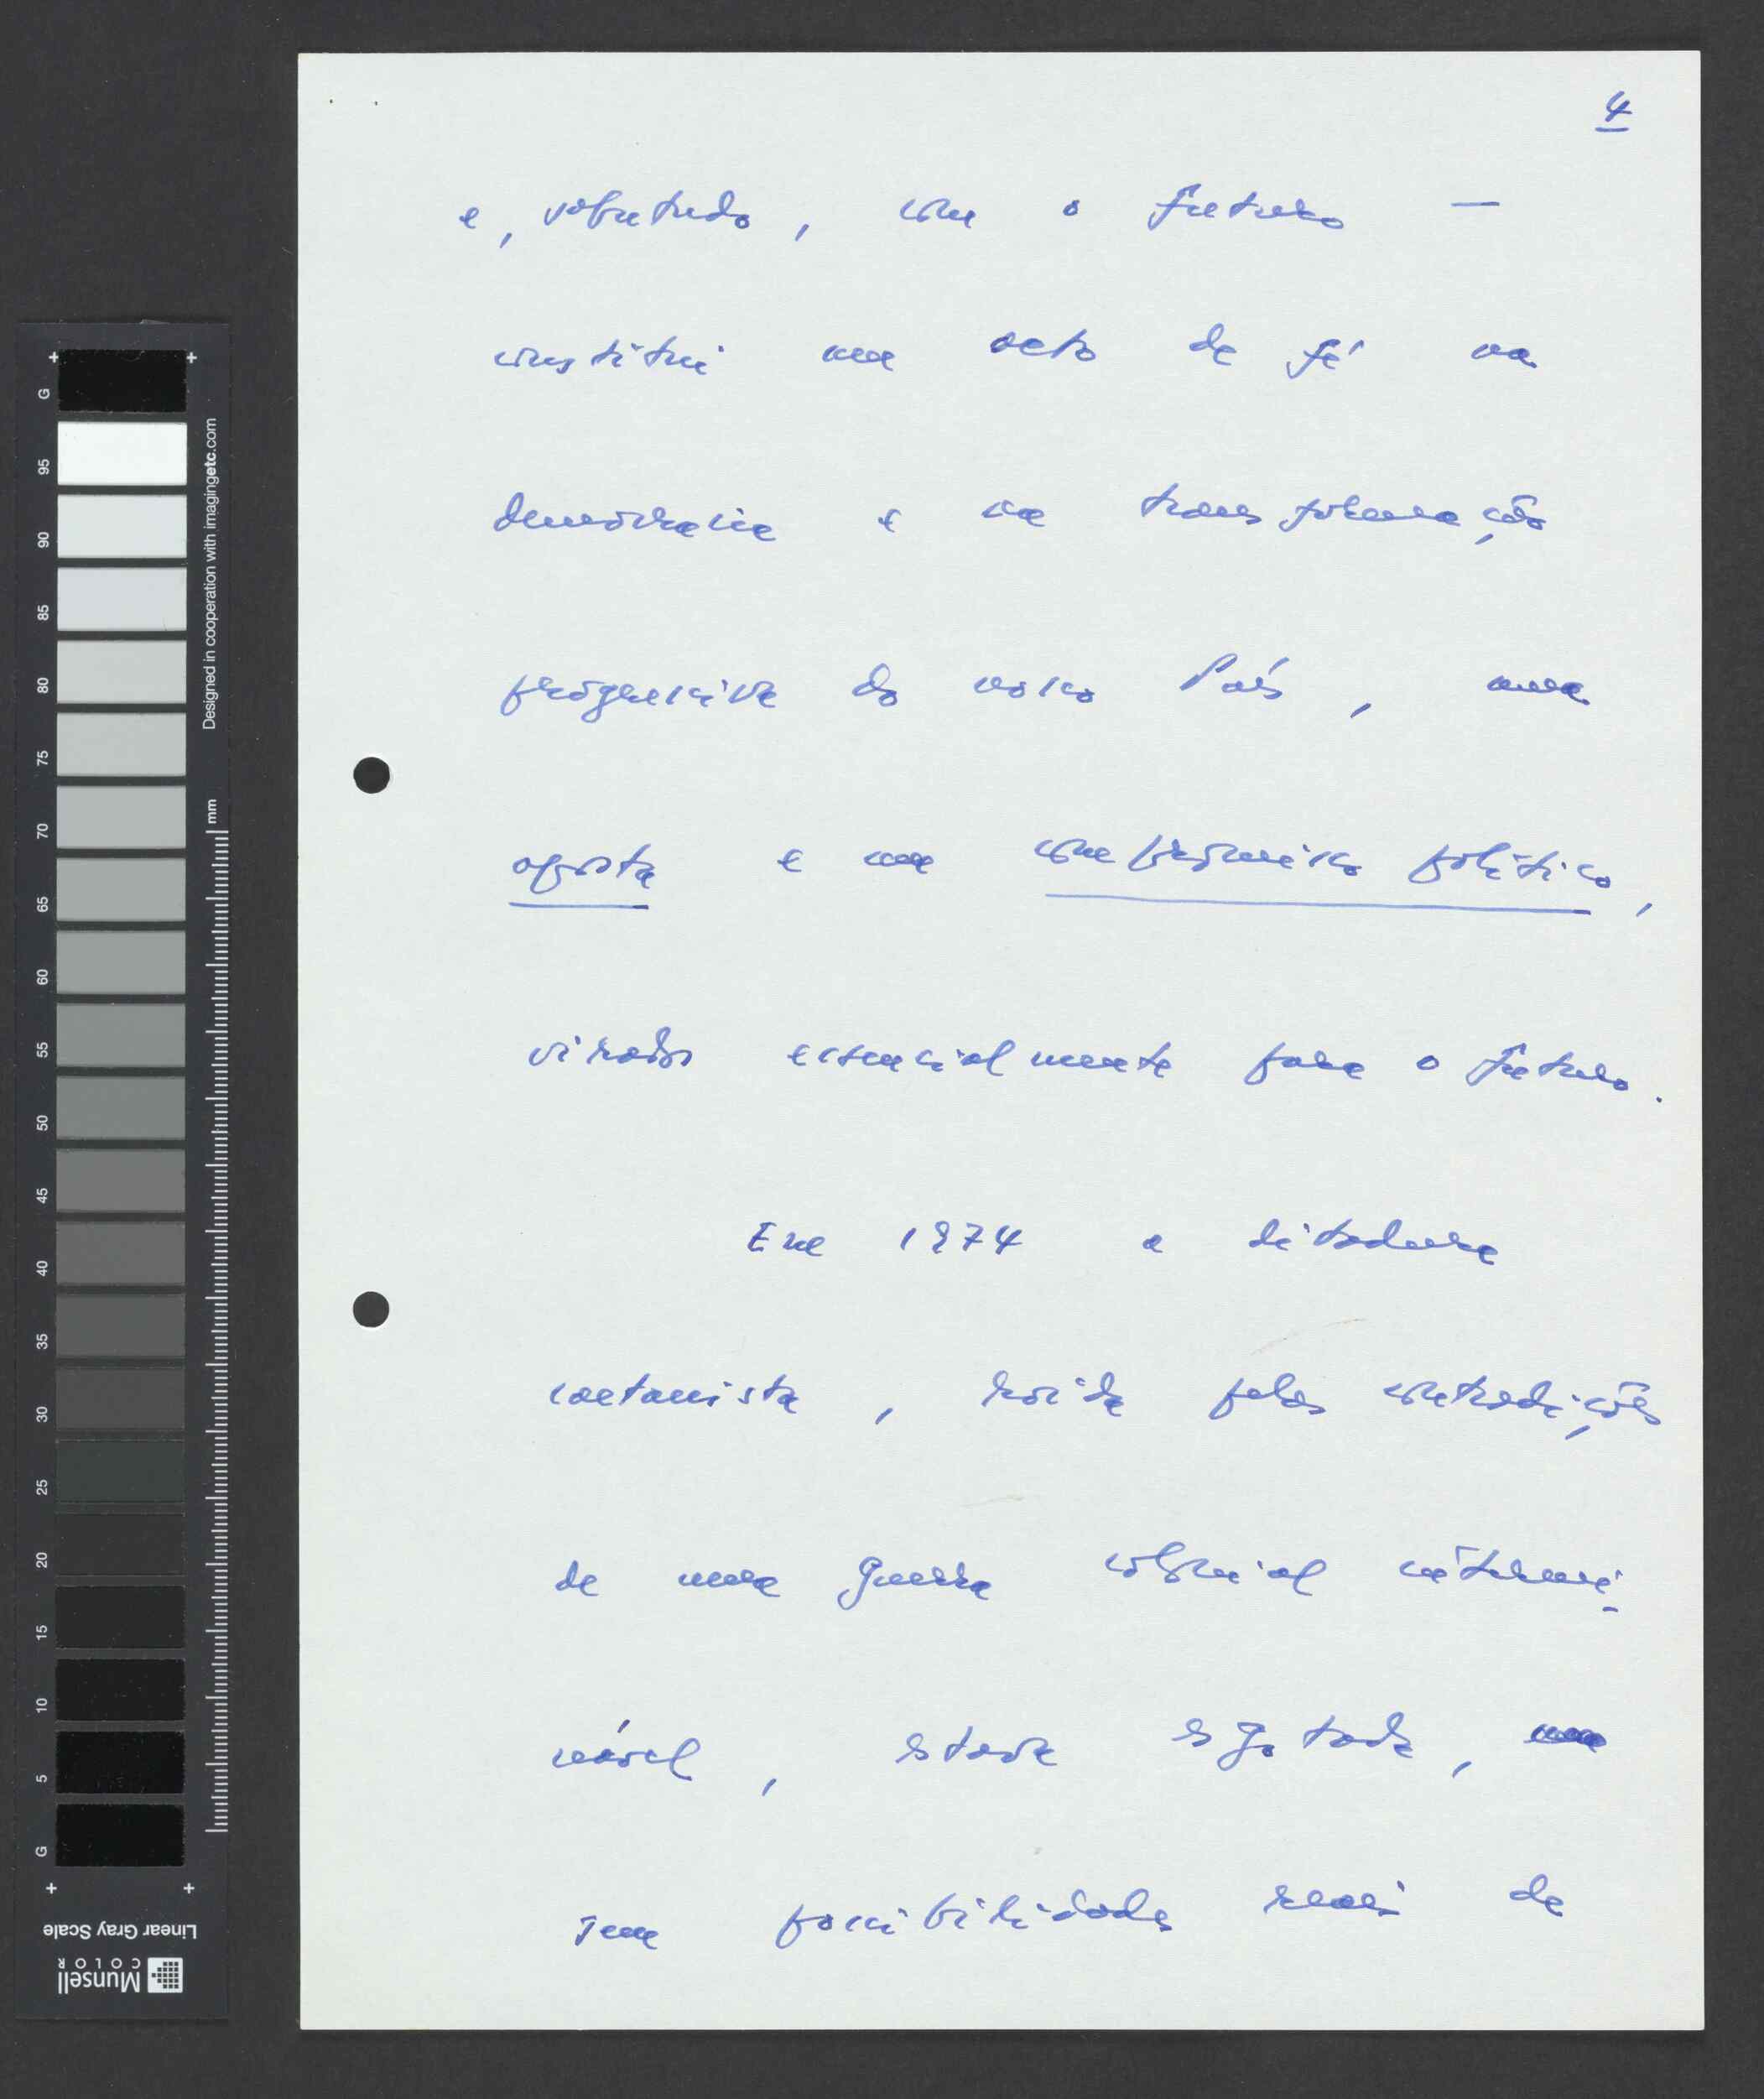 4
e, sobretudo, com o futuro —
constitui um acto de fé na
democracia e na transformação
progressiva do nosso País, uma
aposta e um compromisso político,
virados essencialmente para o futuro.
Em 1974 a ditadura
caetanista, roída pelas contradições
de uma guerra colonial intermi-
nável, estava esgotada,
sem possibilidades reais de
G
95
90
85
80
75
70
65
60
55
50
45
40
35
30
25
20
15
10
5
G
Designed in cooperation with imagingetc.com
mm
Linear Gray Scale
Munsell
COLOR